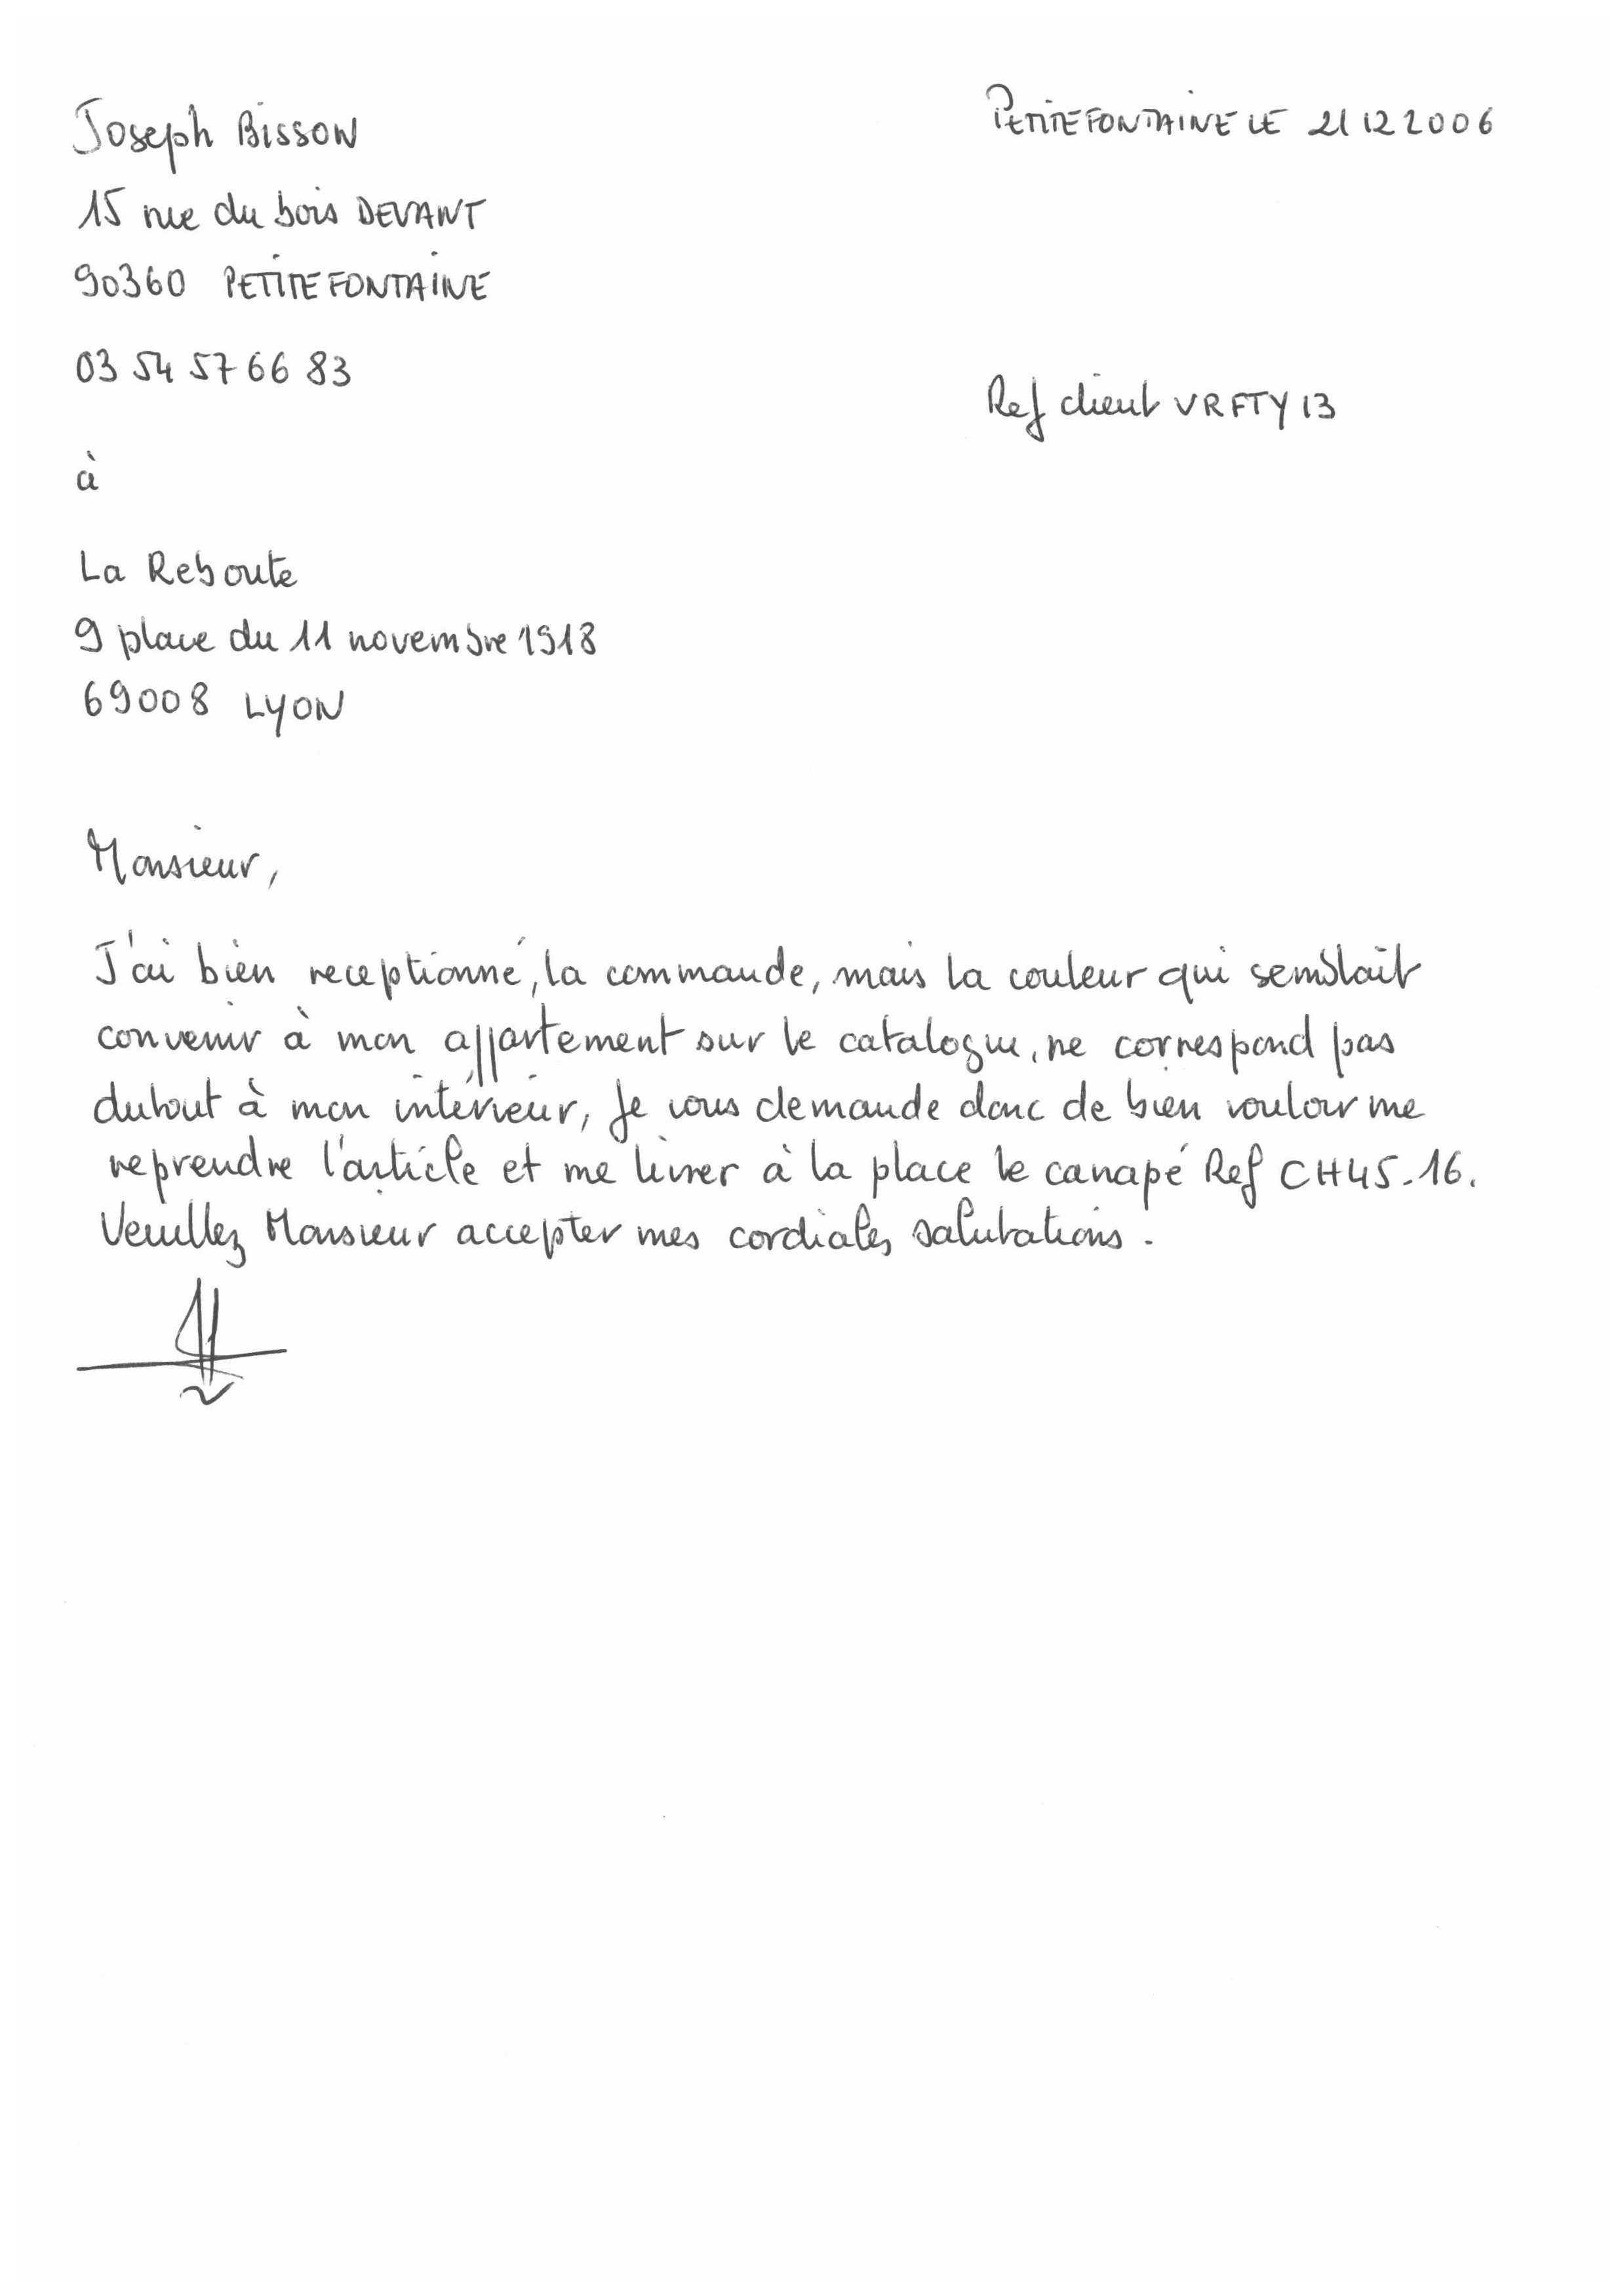 Joseph BISSON
PETITEFONTAINE LE 21 12 2006
15 rue du bois DEVANT
90360 PETITEFONTAINE
03 54 57 66 83
Ref client VRFTY 13
à
La Reboute
9 place du 11 novembre 1918
69008 LYON
Monsieur,
J'ai bien receptionné, la commande, mais la couleur qui semblait
convenir à mon appartement sur le catalogue, ne correspond pas
dutout à mon intérieur, Je vous demande donc de bien vouloir me
reprendre l'article et me livrer à la place le canapé Ref CH45-16.
Veuillez Monsieur accepter mes cordiales salutations.